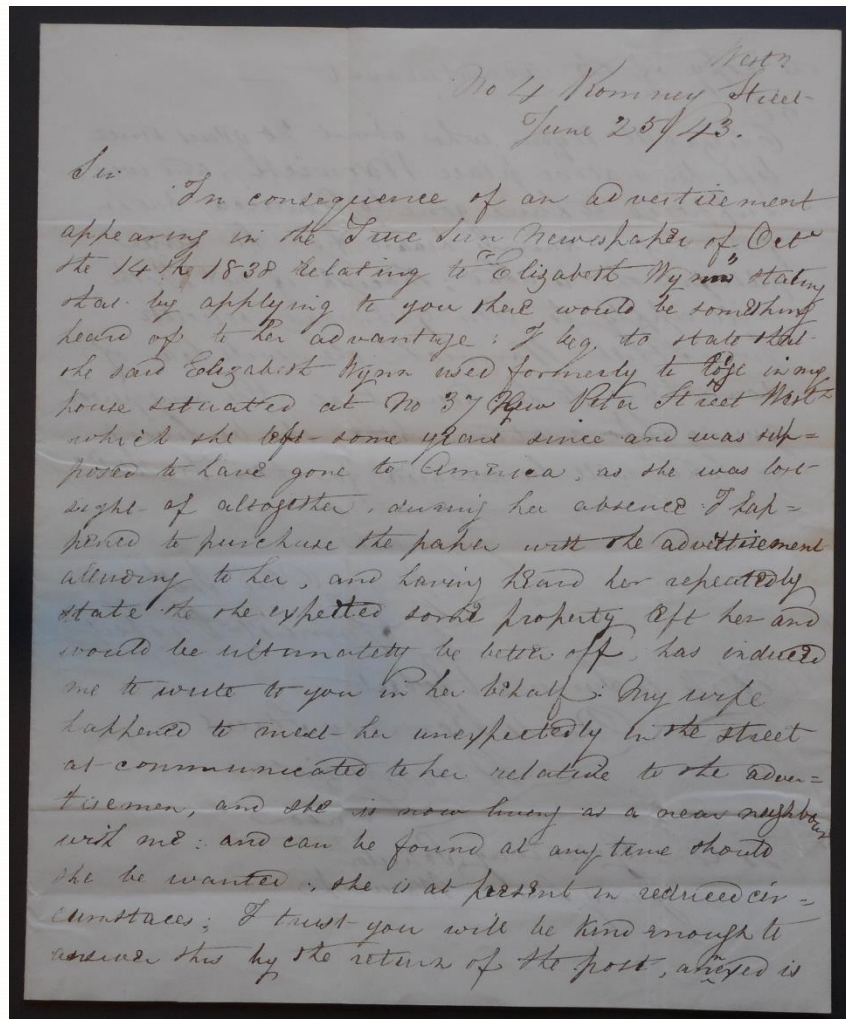 Westr
No 4 Romney Street
June 25/43.
Sir
In consequence of an advertisement
appearing in the True Sun Newspaper of Octr
the 14 the 1838 relating to "Elizabeth Wynn" stating
that by applying to you there would be something
heard of to her advantage; I beg to state that
the said Elizabeth Wynn used formerly to lodge in my
house situated at No 37 New Peter Street Westr
which she left some years since and was sup=
posed to have gone to America, as she was lost
sight of altogether, during her absence I hap=
pened to purchase the paper with the advertisement
alluding to her, and having heard her repeatedly
state the she expected some property left her and
would be ultimately be better off, has induced
me to write to you in her behalf: My wife
happened to meet her unexpectedly in the street
at communicated to her relative to the adver=
tisemen, and she is now living as a near neighbour
with me; and can be found at any time should
she be wanted, she is at present in reduced cir=
cumstaces; I trust you will be kind enough to
answer this by the return of the post, annexed is